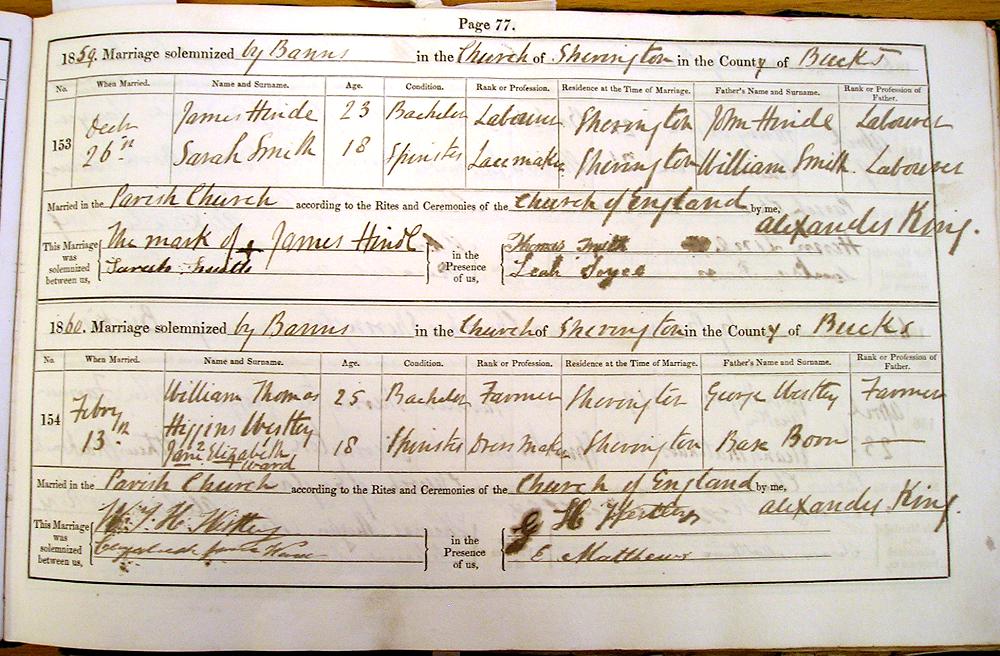 Page 77.
1859. Marriage solemnized by Banns in the Church of Sherington in the County of Bucks
No. When Married. Name and Surname. Age. Condition. Rank or Profession. Residence at the Time of Marriage. Father's Name and Surname. Rank or Profession of Father.
153 Decbr 26th James Hinde 23 Bachelor Labourer Sherington John Hinde Labourer
Sarah Smith 18 Spinster Lacemaker Sherington William Smith Labourer
Married in the Parish Church according to the Rites and Ceremonies of the Church of England by me, Alexander King.
This Marriage was solemnized between us, The mark of James Hinde
Sarah Smith
in the Presence of us, Thomas Smith
Leah Joyce
1860. Marriage solemnized by Banns in the Church of Sherington in the County of Bucks
No. When Married. Name and Surname. Age. Condition. Rank or Profession. Residence at the Time of Marriage. Father's Name and Surname. Rank or Profession of Father.
154 Febry 13th William Thomas Higgins Westley 25 Bachelor Farmer Sherington George Westley Farmer
Jane 2 Elizabeth 1 Ward 18 Spinster Dress Maker Sherington Base Born
Married in the Parish Church according to the Rites and Ceremonies of the Church of England by me, Alexander King.
This Marriage was solemnized between us, Wm T. H. Westley
Elizabeth Jane Ward
in the Presence of us, G H Westley
E Matthews